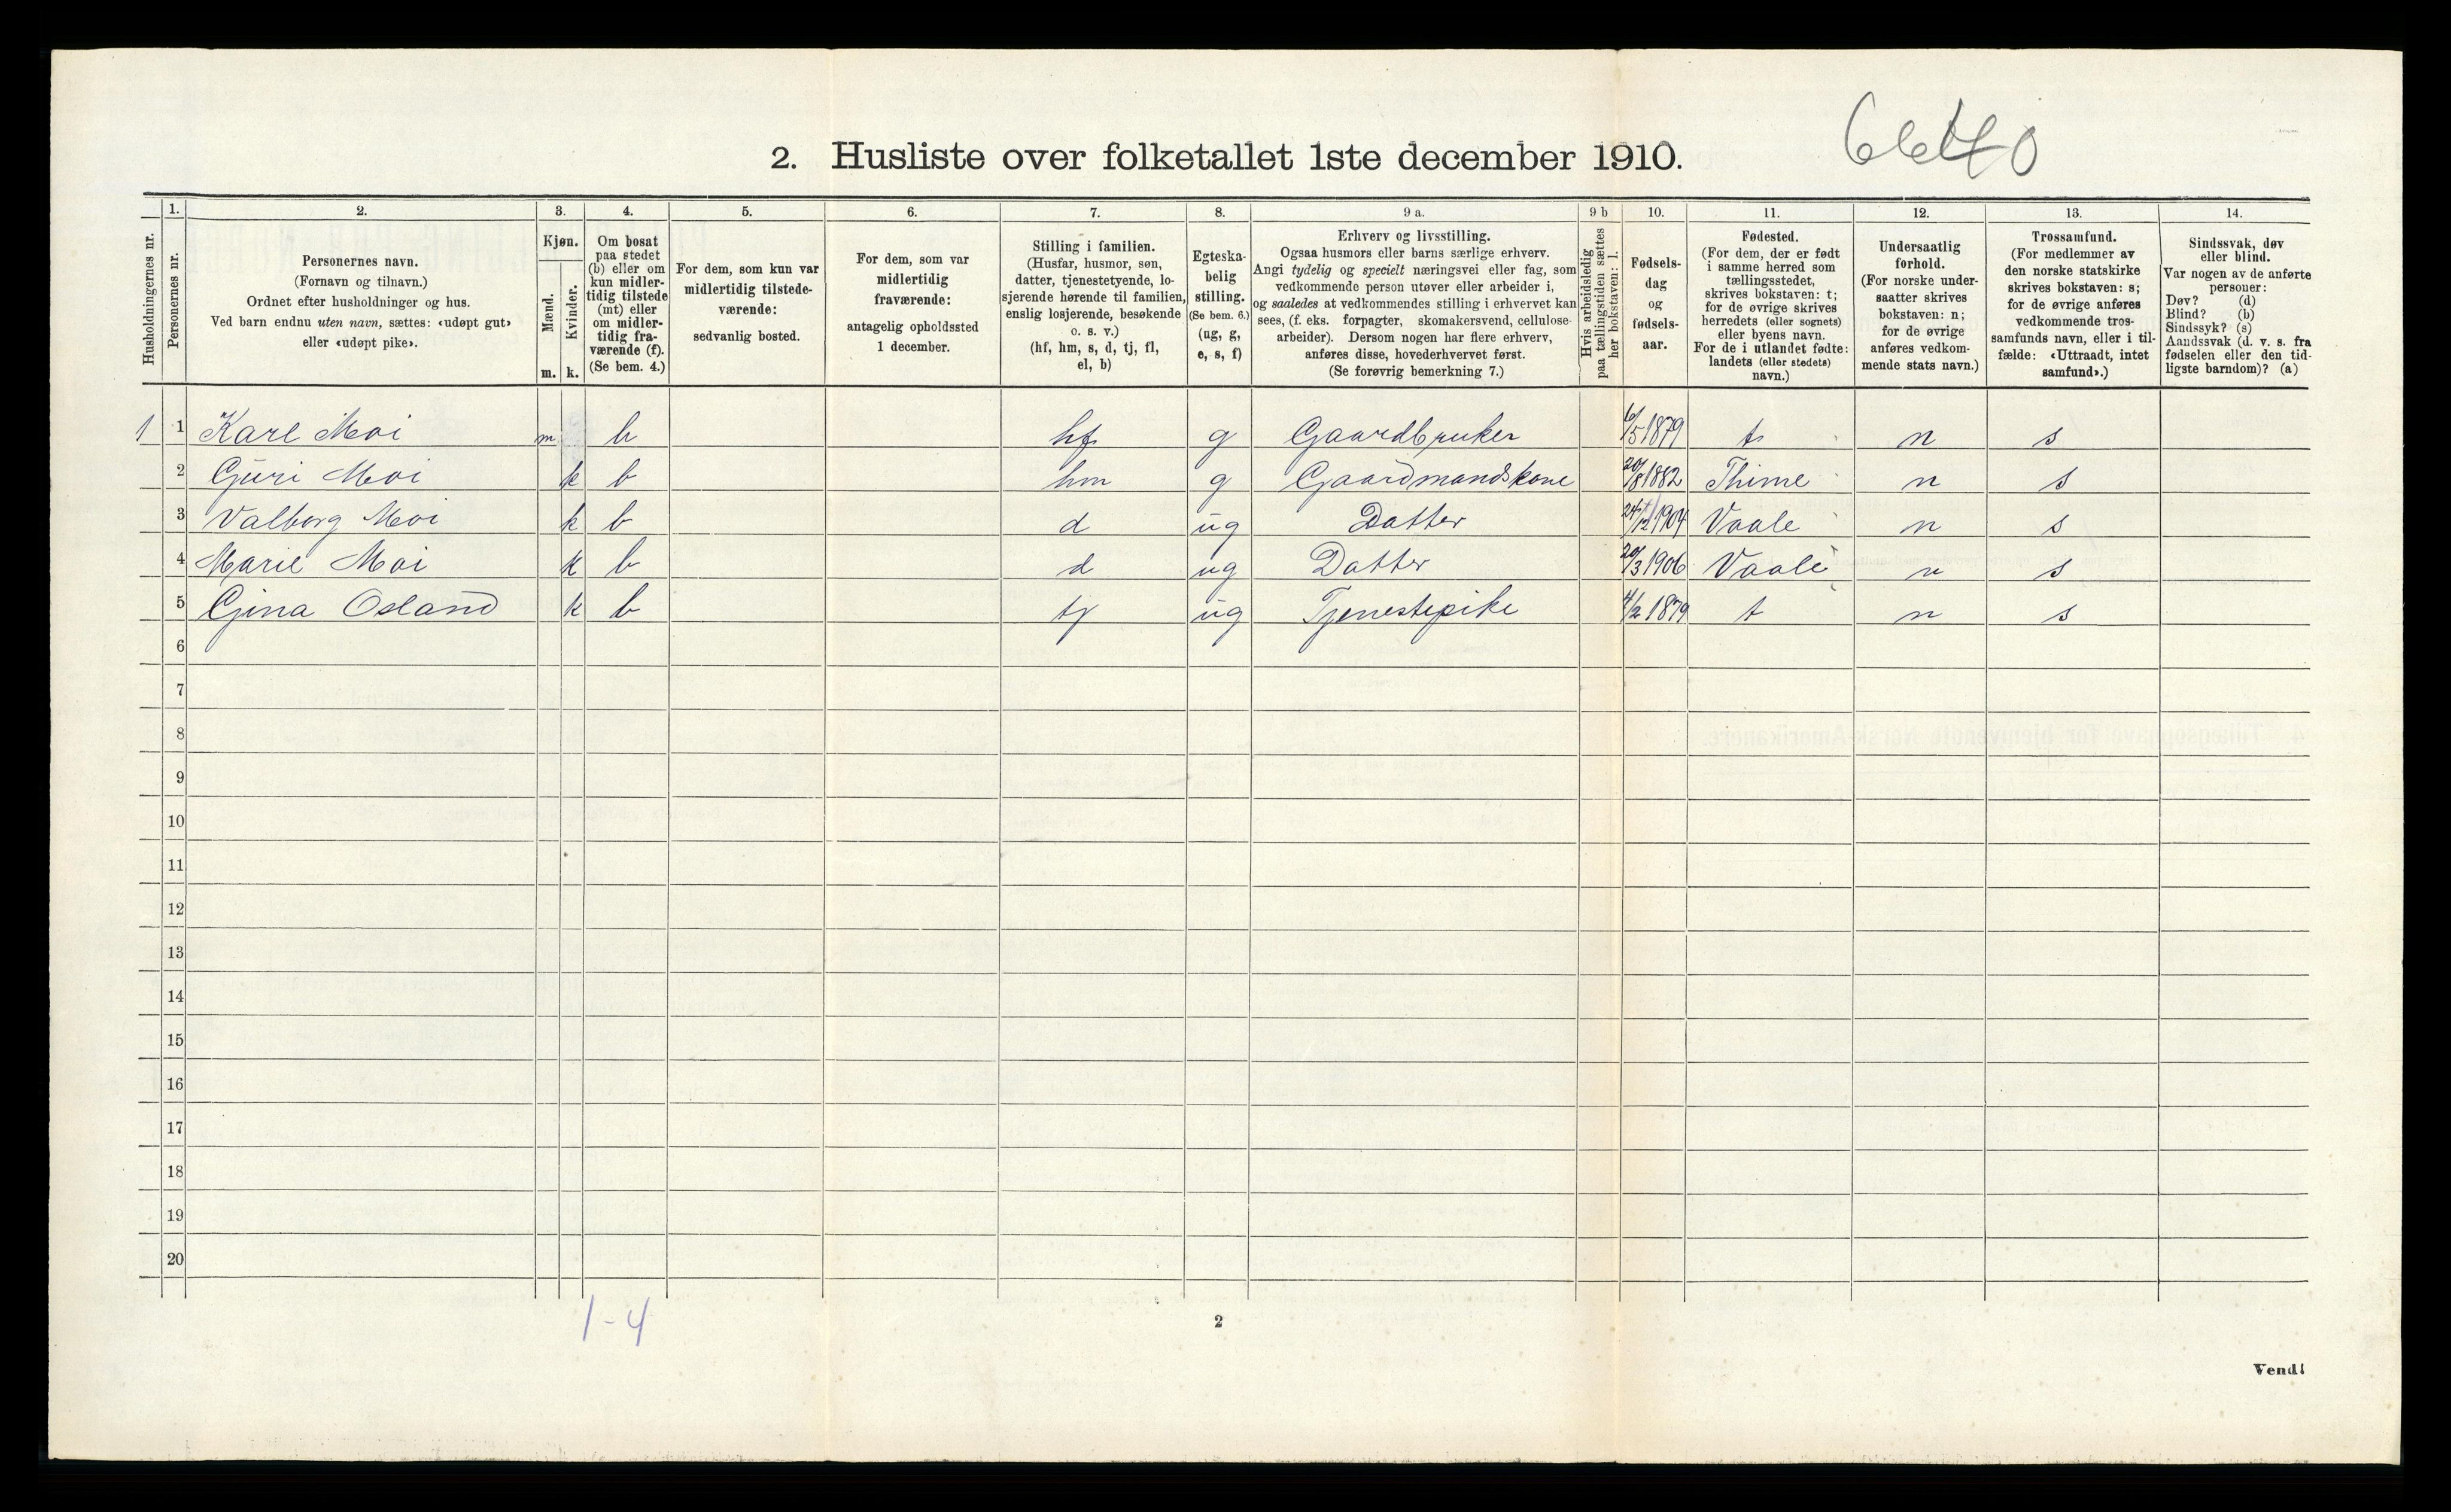 2. Husliste over folketallet 1ste december 1910.
Husholdningernes nr.
1.
Personernes nr.
2.
Personernes navn.
(Fornavn og tilnavn.)
Ordnet efter husholdninger og hus.
Ved barn endnu uten navn, sættes: «udøpt gut»
eller «udøpt pike».
3.
Kjøn.
Mænd.
Kvinder.
m.
k.
4.
Om bosat
paa stedet
(b) eller om
kun midler-
tidig tilstede
(mt) eller
om midler-
tidig fra-
værende (f).
(Se bem. 4.)
5.
For dem, som kun var
midlertidig tilstede-
værende:
sedvanlig bosted.
6.
For dem, som var
midlertidig
fraværende:
antagelig opholdssted
1 december.
7.
Stilling i familien.
(Husfar, husmor, søn,
datter, tjenestetyende, lo-
sjerende hørende til familien,
enslig losjerende, besøkende
o. s. v.)
(hf, hm, s, d, tj, fl,
el, b)
8.
Egteska-
belig
stilling.
(Se bem. 6.)
(ug, g,
e, s, f)
9 a.
Erhverv og livsstilling.
Ogsaa husmors eller barns særlige erhverv.
Angi tydelig og specielt næringsvei eller fag, som
vedkommende person utøver eller arbeider i,
og saaledes at vedkommendes stilling i erhvervet kan
sees, (f. eks. forpagter, skomakersvend, cellulose-
arbeider). Dersom nogen har flere erhverv,
anføres disse, hovederhvervet først.
(Se forøvrig bemerkning 7.)
9 b
Hvis arbeidsledig
paa tællingstiden sættes
her bokstaven: l.
10.
Fødsels-
dag
og
fødsels-
aar.
11.
Fødested.
(For dem, der er født
i samme herred som
tællingsstedet,
skrives bokstaven: t;
for de øvrige skrives
herredets (eller sognets)
eller byens navn.
For de i utlandet fødte:
landets (eller stedets)
navn.)
12.
Undersaatlig
forhold.
(For norske under-
saatter skrives
bokstaven: n;
for de øvrige
anføres vedkom-
mende stats navn.)
13.
Trossamfund.
(For medlemmer av
den norske statskirke
skrives bokstaven: s;
for de øvrige anføres
vedkommende tros-
samfunds navn, eller i til-
fælde: «Uttraadt, intet
samfund».)
14.
Sindssvak, døv
eller blind.
Var nogen av de anførte
personer:
Døv? (d)
Blind? (b)
Sindssyk? (s)
Aandssvak (d. v. s. fra
fødselen eller den tid-
ligste barndom)? (a)
1 1 Karl Moi m b hf g Gaardbruker 6/5 1879 t n s
2 Guri Moi k b hm g Gaardmandskone 20/8 1882 Thime n s
3 Valborg Moi k b d ug Datter 24/12 1904 Vaale n s
4 Marie Moi k b d ug Datter 20/3 1906 Vaale n s
5 Gina Osland k b tj ug Tjenestepike 4/2 1879 t n s
6
7
8
9
10
11
12
13
14
15
16
17
18
19
20
1-4
2
Vend!